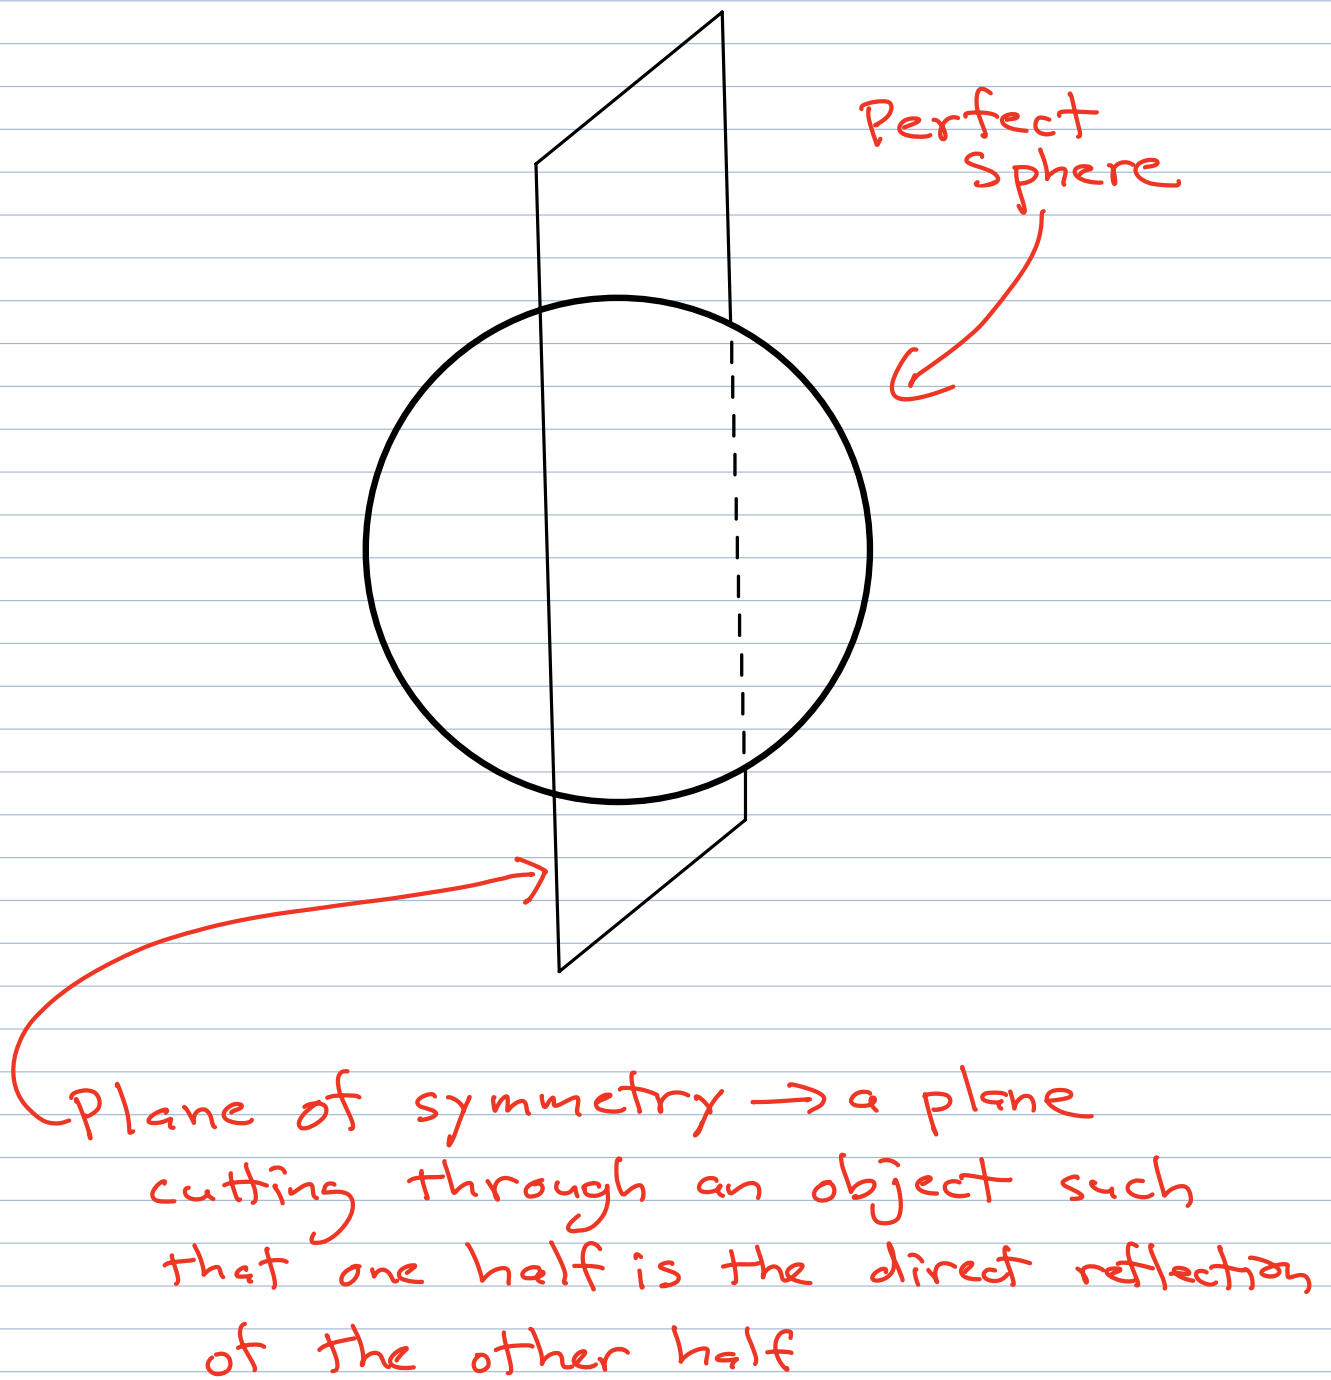 Perfect
Sphere
Plane of symmetry → a plane
cutting through an object such
that one half is the direct reflection
of the other half